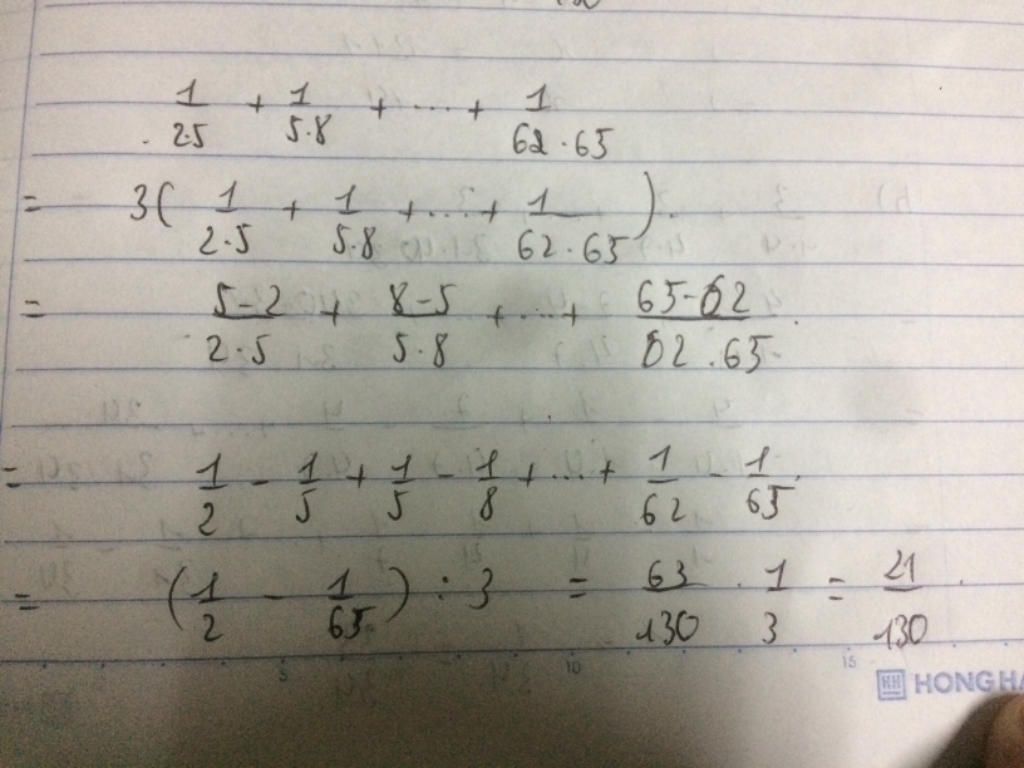 1/2·5 + 1/5·8 + ... + 1/62·65
= 3(1/2·5 + 1/5·8 + ... + 1/62·65)
= 5-2/2·5 + 8-5/5·8 + ... + 65-62/62·65
= 1/2 - 1/5 + 1/5 - 1/8 + ... + 1/62 - 1/65
= (1/2 - 1/65) : 3 = 63/130 · 1/3 = 21/130
5 10 15
HH HONG HA